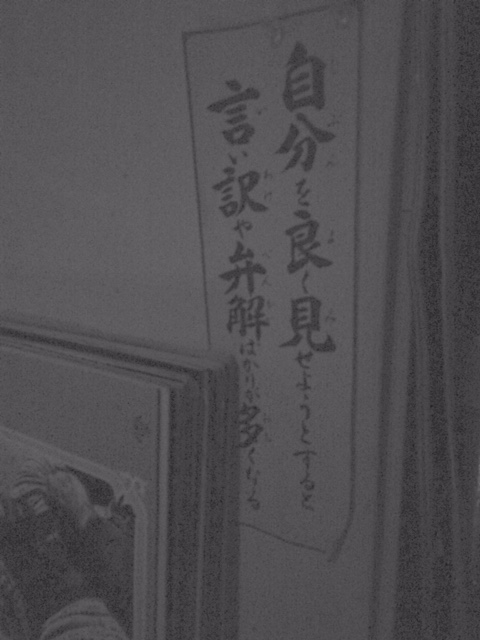 自分を良く見せようとすると
言い訳や弁解ばかりが多くなる